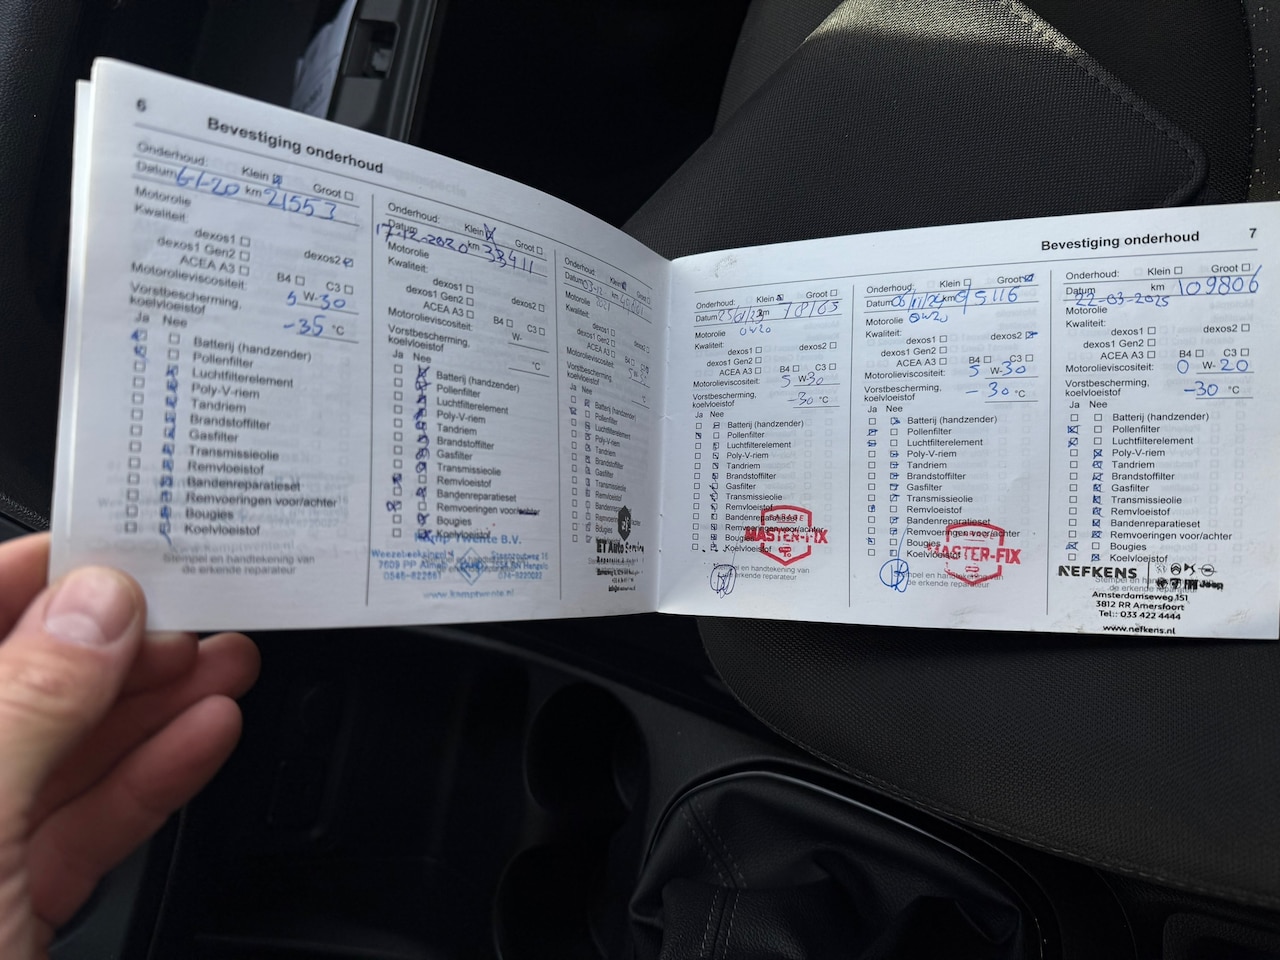 6
Bevestiging onderhoud
Onderhoud: Klein Groot
Datum 6-1-20 km 21553
Motorolie
Kwaliteit:
dexos1 dexos2
dexos1 Gen2
ACEA A3 B4 C3
Motorolieviscositeit: 5 W-30
Vorstbescherming,
koelvloeistof -35 °C
Ja Nee
Batterij (handzender)
Pollenfilter
Luchtfilterelement
Poly-V-riem
Tandriem
Brandstoffilter
Gasfilter
Transmissieolie
Remvloeistof
Bandenreparatieset
Remvoeringen voor/achter
Bougies
Koelvloeistof
Stempel en handtekening van
de erkende reparateur
Onderhoud: Klein Groot
Datum 17-12-2020 km 33411
Motorolie
Kwaliteit:
dexos1
dexos1 Gen2 dexos2
ACEA A3 B4 C3
Motorolieviscositeit: W-
Vorstbescherming,
koelvloeistof °C
Ja Nee
Batterij (handzender)
Pollenfilter
Luchtfilterelement
Poly-V-riem
Tandriem
Brandstoffilter
Gasfilter
Transmissieolie
Remvloeistof
Bandenreparatieset
Remvoeringen voor/achter
Bougies
Koelvloeistof
7609 PP
www.kamptwente.nl
Onderhoud: Klein Groot
Datum km
Motorolie
Kwaliteit:
dexos1
dexos1 Gen2 dexos2
ACEA A3 B4
Motorolieviscositeit:
Vorstbescherming,
koelvloeistof
Ja Nee
Batterij (handzender)
Pollenfilter
Luchtfilterelement
Poly-V-riem
Tandriem
Brandstoffilter
Gasfilter
Transmissieolie
Remvloeistof
Bandenreparatieset
Remvoeringen
Bougies
ET Auto Service
Bevestiging onderhoud 7
Onderhoud: Klein Groot
Datum km 78165
Motorolie 0W20
Kwaliteit:
dexos1 dexos2
dexos1 Gen2
ACEA A3 B4 C3
Motorolieviscositeit: 5 W-30
Vorstbescherming,
koelvloeistof -30 °C
Ja Nee
Batterij (handzender)
Pollenfilter
Luchtfilterelement
Poly-V-riem
Tandriem
Brandstoffilter
Gasfilter
Transmissieolie
Remvloeistof
Bandenreparatieset
Remvoeringen voor/achter
Bougies
Koelvloeistof
GARAGE
MASTER-FIX
de erkende reparateur
Onderhoud: Klein Groot
Datum 06/11/24 km 95116
Motorolie 0W20
Kwaliteit:
dexos1 dexos2
dexos1 Gen2
ACEA A3 B4 C3
Motorolieviscositeit: 5 W-30
Vorstbescherming,
koelvloeistof -30 °C
Ja Nee
Batterij (handzender)
Pollenfilter
Luchtfilterelement
Poly-V-riem
Tandriem
Brandstoffilter
Gasfilter
Transmissieolie
Remvloeistof
Bandenreparatieset
Remvoeringen voor/achter
Bougies
Koelvloeistof
MASTER-FIX
Stempel en handtekening van
de erkende reparateur
Onderhoud: Klein Groot
Datum 22-03-2025 km 109806
Motorolie
Kwaliteit:
dexos1 dexos2
dexos1 Gen2
ACEA A3 B4 C3
Motorolieviscositeit: 0 W-20
Vorstbescherming,
koelvloeistof -30 °C
Ja Nee
Batterij (handzender)
Pollenfilter
Luchtfilterelement
Poly-V-riem
Tandriem
Brandstoffilter
Gasfilter
Transmissieolie
Remvloeistof
Bandenreparatieset
Remvoeringen voor/achter
Bougies
Koelvloeistof
NEFKENS
Jeep
Stempel en handtekening
de erkende
Amsterdamseweg 151
3812 RR Amersfoort
Tel.: 033 422 4444
www.nefkens.nl